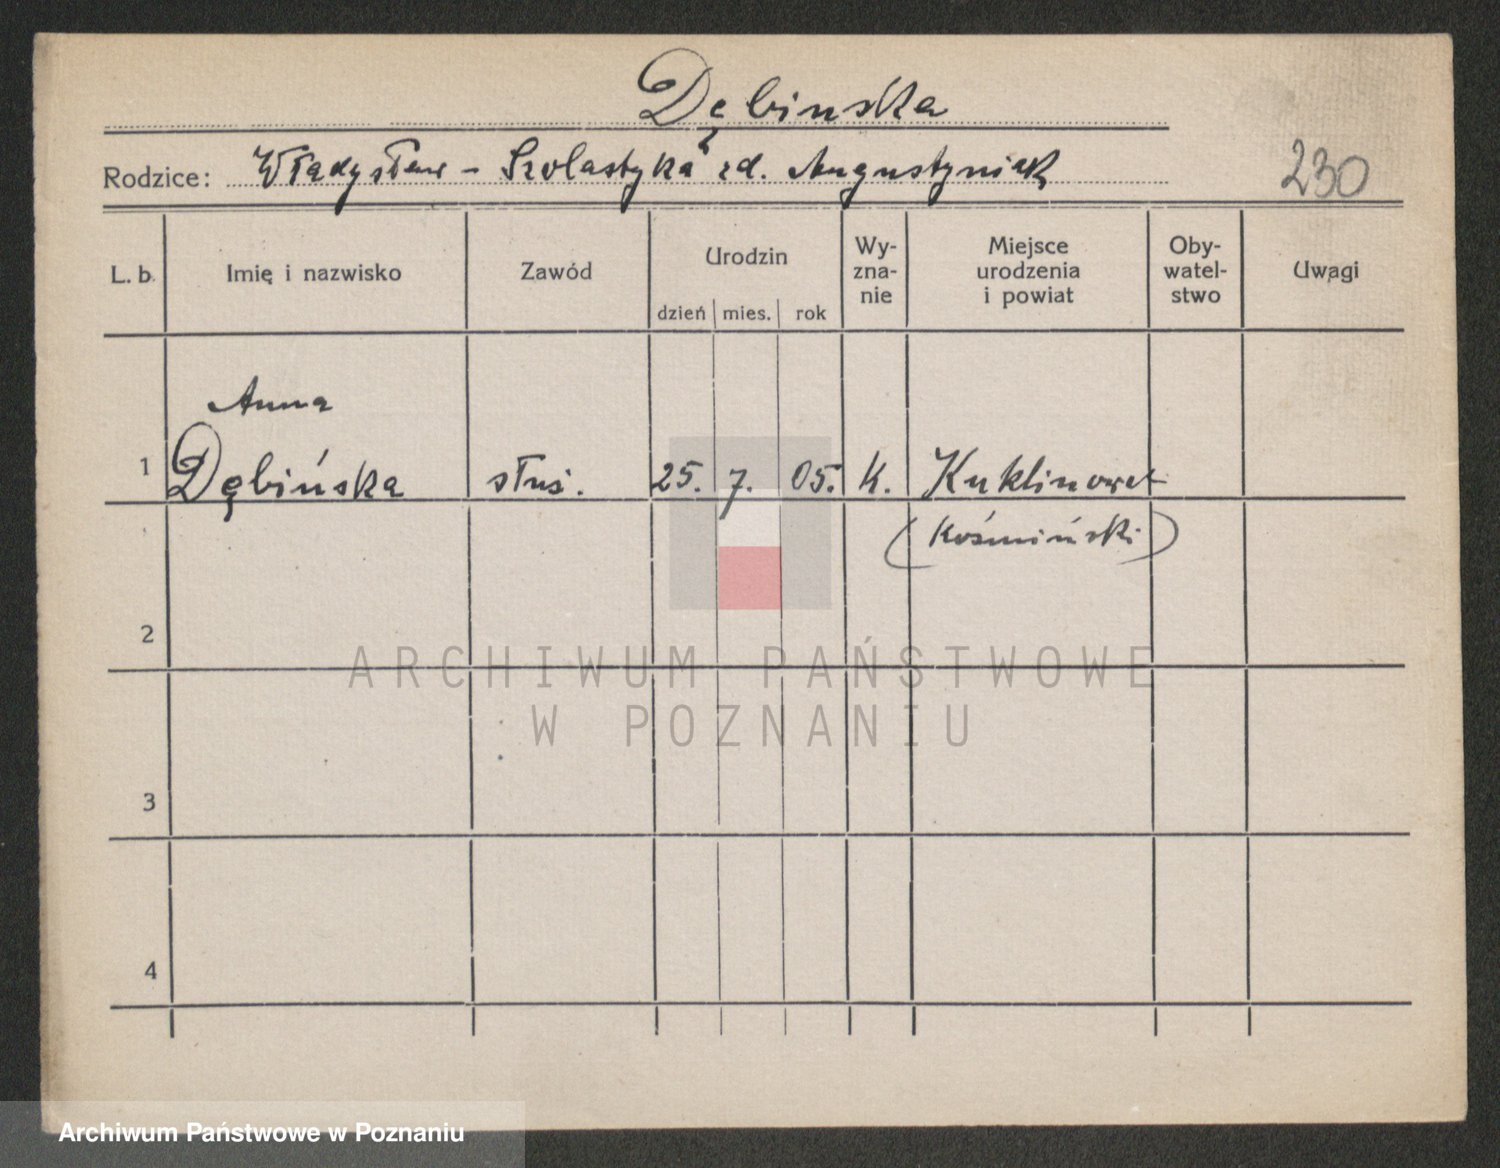 Dębinska
Rodzice: Władysław - Szolastyka zd. Augustyniak
230
L. b. Imię i nazwisko Zawód Urodzin dzień mies. rok Wy-zna-nie Miejsce urodzenia i powiat Oby-watel-stwo Uwagi
Anna
1 Dębińska służ. 25. 7. 05. K. Kuklinowo
(Kośmiński)
2
ARCHIWUM PAŃSTWOWE
W POZNANIU
3
4
Archiwum Państwowe w Poznaniu